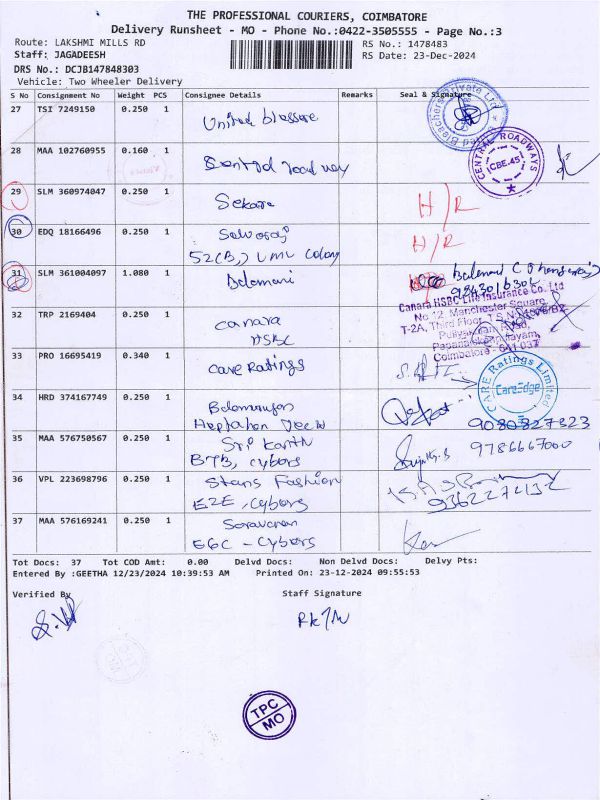 THE PROFESSIONAL COURIERS, COIMBATORE
Delivery Runsheet - MO - Phone No.:0422-3505555 - Page No.:3
Route: LAKSHMI MILLS RD
RS No.: 1478483
Staff: JAGADEESH
RS Date: 23-Dec-2024
DRS No.: DCJB147848303
Vehicle: Two Wheeler Delivery
S No Consignment No Weight PCS Consignee Details Remarks Seal & Signature
27 TSI 7249150 0.250 1 United
28 MAA 102760955 0.160 1
CENTRAL ROADWAYS
CBE.45
29 SLM 360974047 0.250 1 H/R
30 EDQ 18166496 0.250 1 Selvaraj H/R
52(B,) UMV Colony
31 SLM 361004097 1.080 1 Balamani
32 TRP 2169404 0.250 1 Canara
HSBC
Canara HSBC Life Insurance Co. Ltd
No 12, Manchester Square,
T-2A, Third Floor,
Coimbatore - 641 037
33 PRO 16695419 0.340 1 Care Ratings
CARE Ratings Limited
CareEdge
34 HRD 374167749 0.250 1
9080827323
35 MAA 576750567 0.250 1 Sri Kanth 9786667000
B7B, Cyborg
36 VPL 223698796 0.250 1 Stans Fashion
E2E, Cyborg 9362274132
37 MAA 576169241 0.250 1 Saravanan
E6C - Cyborg
Tot Docs: 37 Tot COD Amt: 0.00 Delvd Docs: Non Delvd Docs: Delvy Pts:
Entered By :GEETHA 12/23/2024 10:39:53 AM Printed On: 23-12-2024 09:55:53
Verified By Staff Signature
TPC
MO